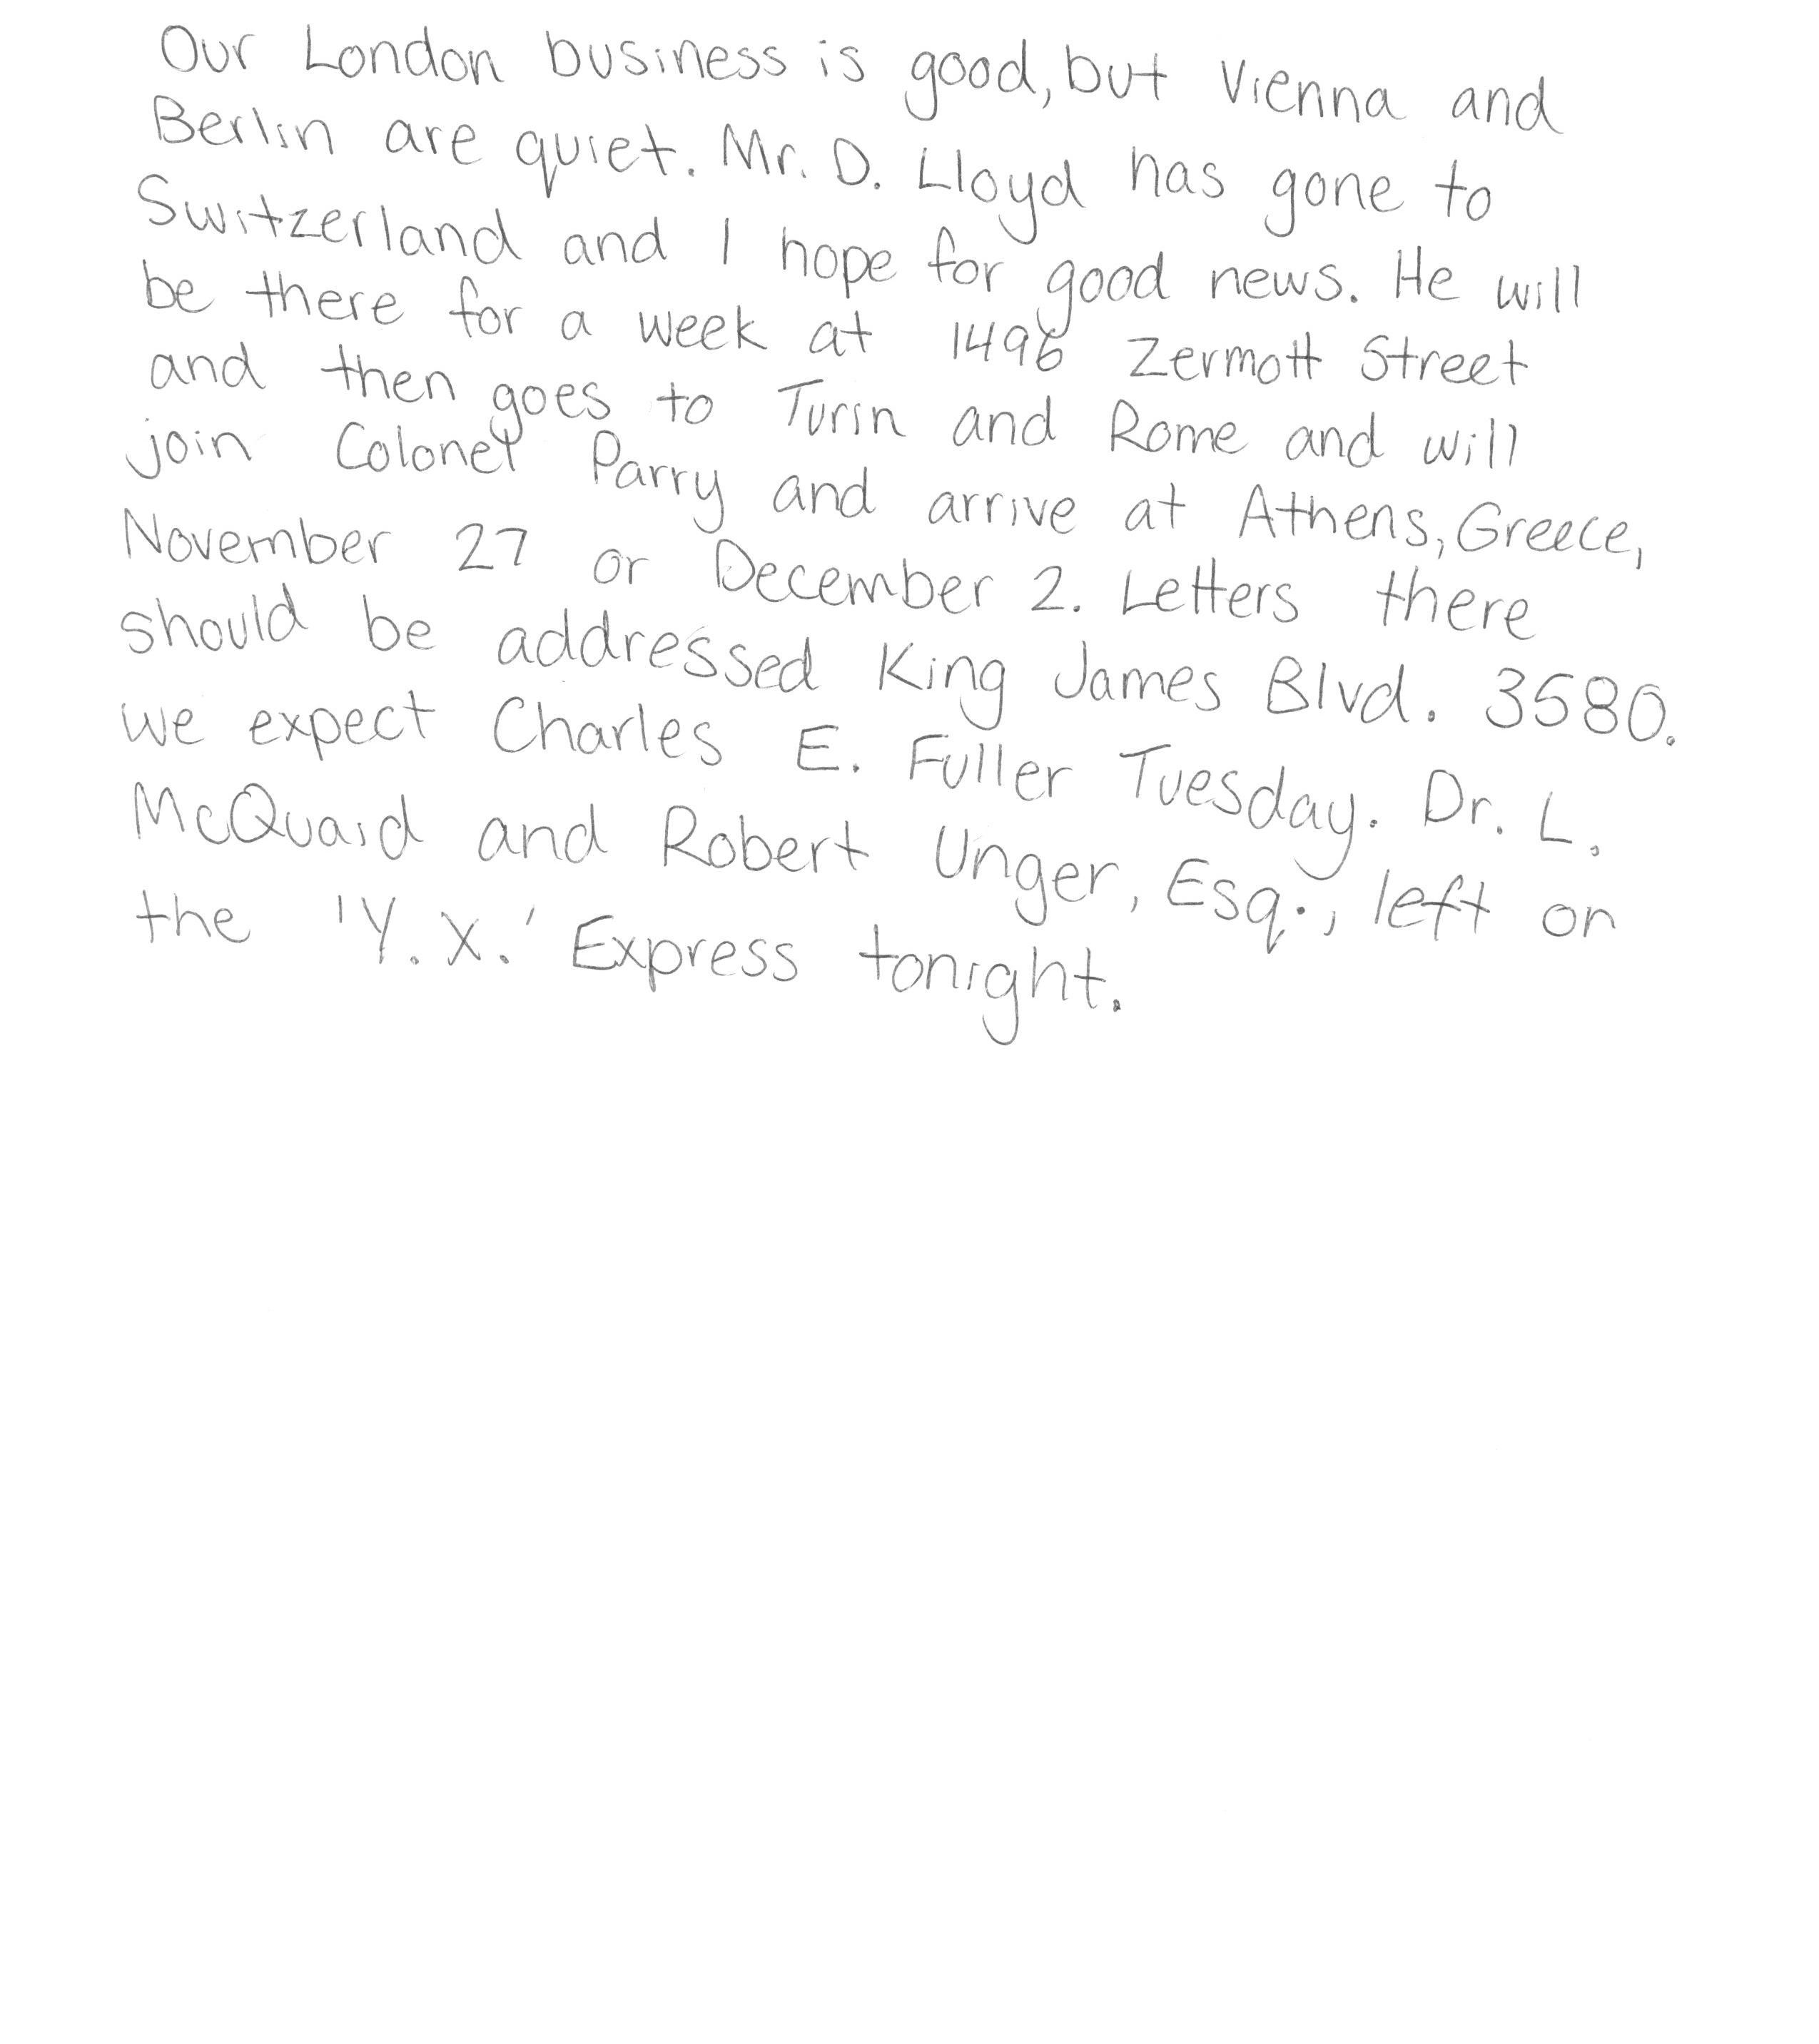 Our London business is good, but Vienna and
Berlin are quiet. Mr. D. Lloyd has gone to
Switzerland and I hope for good news. He will
be there for a week at 1496 Zermott Street
and then goes to Turin and Rome and will
join Colonel Parry and arrive at Athens, Greece,
November 27 or December 2. Letters there
should be addressed King James Blvd. 3580.
We expect Charles E. Fuller Tuesday. Dr. L.
McQuaid and Robert Unger, Esq., left on
the 'Y. X.' Express tonight.